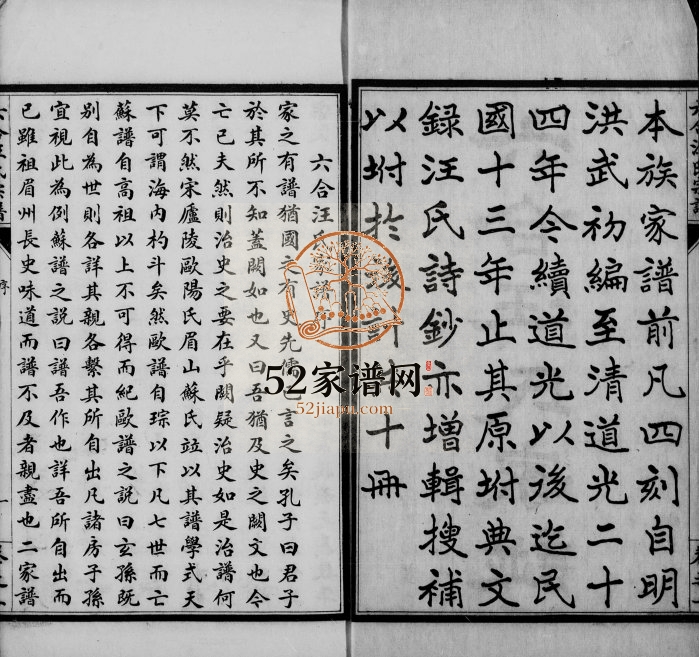 本族家譜前凡四刻自明
洪武初編至清道光二十
四年今續道光以後迄民
國十三年止其原坿典文
録汪氏詩鈔亦增輯搜補
以坿於後訂十冊
六合汪氏家譜
家之有譜猶國之有史先儒言之矣孔子曰君子
於其所不知蓋闕如也又曰吾猶及史之闕文也今
亡已夫然則治史之要在乎闕疑治史如是治譜何
莫不然宋廬陵歐陽氏眉山蘇氏竝以其譜學式天
下可謂海内杓斗矣然歐譜自琮以下凡七世而亡
蘇譜自高祖以上不可得而紀歐譜之説曰玄孫既
别自為世則各詳其親各繫其所自出凡諸房子孫
宜視此為例蘇譜之説曰譜吾作也詳吾所自出而
已雖祖眉州長史味道而譜不及者親盡也二家譜
序
一
52家谱网
52jiapu.com